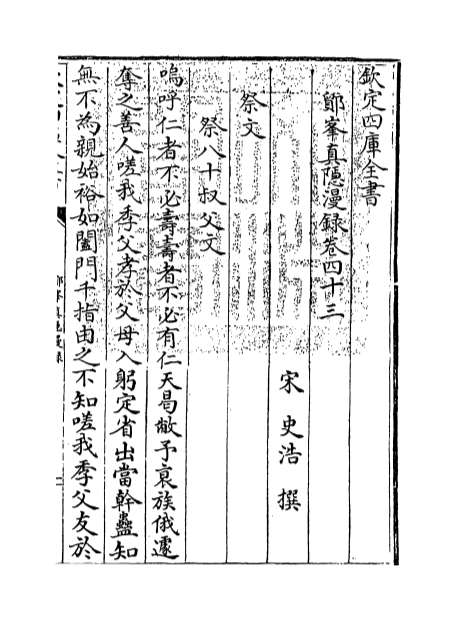 欽定四庫全書
鄮峯真隱漫錄卷四十三
宋 史浩 撰
祭文
祭八十叔父文
嗚呼仁者不必壽壽者不必有仁天曷敝予衰族俄遽
奪之善人嗟我季父孝於父母入躬定省出當幹蠱知
無不為親始裕如闔門千指由之不知嗟我季父友於